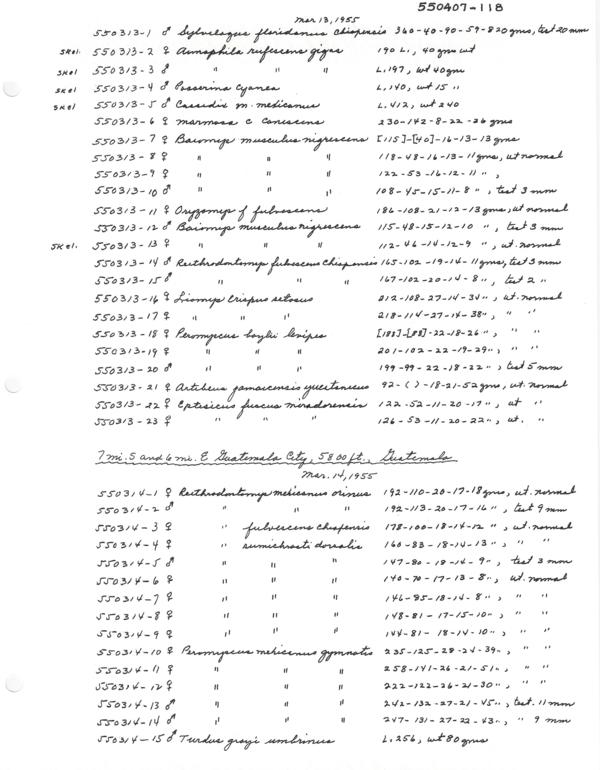 550407-118
Mar 13, 1955
550313-1 ♂ Sylvilagus floridanus chiapensis 360-40-90-59-820 gms, test 20 mm
Skel. 550313-2 ♀ Aimophila rufescens gigas 190 L., 40 gms wt
Skel 550313-3 ♂ " " " L.197, wt 40 gm
Skel 550313-4 ♂ Passerina cyanea L.140, wt 15 "
Skel 550313-5 ♂ Cassidix m. mexicanus L.412, wt 240
550313-6 ♀ Marmosa c canescens 230-142-8-22-26 gms
550313-7 ♀ Baiomys musculus nigrescens [115]-[40]-16-13-13 gms
550313-8 ♀ " " " 118-48-16-13-11 gms, ut normal
550313-9 ♀ " " " 122-53-16-12-11 ",
550313-10 ♂ " " " 108-45-15-11-8 ", test 3 mm
550313-11 ♀ Oryzomys f fulvescens 186-108-21-12-13 gms, ut normal
550313-12 ♂ Baiomys musculus nigrescens 115-48-15-12-10 ", test 3 mm
Skel. 550313-13 ♀ " " " 112-46-14-12-9 ", ut. normal
550313-14 ♂ Reithrodontomys fulvescens chiapensis 165-102-19-14-11 gms, test 3 mm
550313-15 ♂ " " " 167-102-20-14-8 ", test 2 "
550313-16 ♀ Liomys crispus setosus 212-108-27-14-34 ", ut. normal
550313-17 ♀ " " " 218-114-27-14-38 ", " "
550313-18 ♀ Peromyscus boylii levipes [183]-[88]-22-18-26 ", " "
550313-19 ♀ " " " 201-102-22-19-29 ", " "
550313-20 ♂ " " " 199-99-22-18-22 ", test 5 mm
550313-21 ♀ Artibeus jamaicensis yucatanicus 92-( )-18-21-52 gms, ut. normal
550313-22 ♀ Eptesicus fuscus miradorensis 122-52-11-20-17 ", ut "
550313-23 ♀ " " " 126-53-11-20-22 ", ut. "
7 mi. S and 6 mi. E Guatemala City, 5800 ft., Guatemala
Mar. 14, 1955
550314-1 ♀ Reithrodontomys mexicanus orinus 192-110-20-17-18 gms, ut. normal
550314-2 ♂ " " " 192-113-20-17-16 ", test 9 mm
550314-3 ♀ " fulvescens chiapensis 178-100-18-14-12 ", ut. normal
550314-4 ♀ " sumichrasti dorsalis 160-83-18-14-13 ", " "
550314-5 ♂ " " " 147-80-18-14-9 ", test 3 mm
550314-6 ♀ " " " 140-70-17-13-8 ", ut. normal
550314-7 ♀ " " " 146-85-18-14-8 ", " "
550314-8 ♀ " " " 148-81-17-15-10 ", " "
550314-9 ♀ " " " 144-81-18-14-10 ", " "
550314-10 ♀ Peromyscus mexicanus gymnotis 235-125-28-24-39 ", " "
550314-11 ♀ " " " 258-141-26-21-51 ", " "
550314-12 ♀ " " " 222-122-26-21-30 ", " "
550314-13 ♂ " " " 242-132-27-21-45 ", test. 11 mm
550314-14 ♂ " " " 247-131-27-22-43 ", " 9 mm
550314-15 ♂ Turdus grayi umbrinus L.256, wt 80 gms